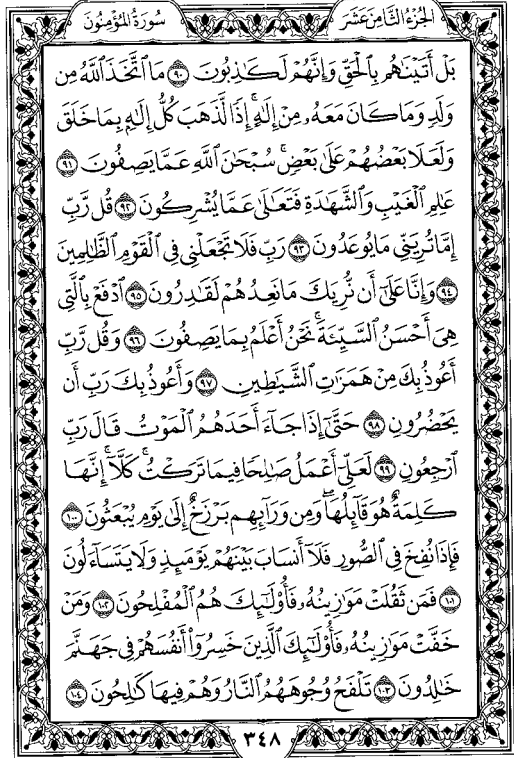 الجُزْءُ الثَّامِنَ عَشَرَ
سُورَةُ المُؤْمِنُونَ
بَلْ أَتَيْنَٰهُم بِٱلْحَقِّ وَإِنَّهُمْ لَكَٰذِبُونَ ٩٠ مَا ٱتَّخَذَ ٱللَّهُ مِن
وَلَدٍ وَمَا كَانَ مَعَهُۥ مِنْ إِلَٰهٍ ۚ إِذًا لَّذَهَبَ كُلُّ إِلَٰهٍۭ بِمَا خَلَقَ
وَلَعَلَا بَعْضُهُمْ عَلَىٰ بَعْضٍ ۚ سُبْحَٰنَ ٱللَّهِ عَمَّا يَصِفُونَ ٩١
عَٰلِمِ ٱلْغَيْبِ وَٱلشَّهَٰدَةِ فَتَعَٰلَىٰ عَمَّا يُشْرِكُونَ ٩٢ قُل رَّبِّ
إِمَّا تُرِيَنِّى مَا يُوعَدُونَ ٩٣ رَبِّ فَلَا تَجْعَلْنِى فِى ٱلْقَوْمِ ٱلظَّٰلِمِينَ
٩٤ وَإِنَّا عَلَىٰٓ أَن نُّرِيَكَ مَا نَعِدُهُمْ لَقَٰدِرُونَ ٩٥ ٱدْفَعْ بِٱلَّتِى
هِىَ أَحْسَنُ ٱلسَّيِّئَةَ ۚ نَحْنُ أَعْلَمُ بِمَا يَصِفُونَ ٩٦ وَقُل رَّبِّ
أَعُوذُ بِكَ مِنْ هَمَزَٰتِ ٱلشَّيَٰطِينِ ٩٧ وَأَعُوذُ بِكَ رَبِّ أَن
يَحْضُرُونِ ٩٨ حَتَّىٰٓ إِذَا جَآءَ أَحَدَهُمُ ٱلْمَوْتُ قَالَ رَبِّ
ٱرْجِعُونِ ٩٩ لَعَلِّىٓ أَعْمَلُ صَٰلِحًا فِيمَا تَرَكْتُ ۚ كَلَّآ ۚ إِنَّهَا
كَلِمَةٌ هُوَ قَآئِلُهَا ۖ وَمِن وَرَآئِهِم بَرْزَخٌ إِلَىٰ يَوْمِ يُبْعَثُونَ ١٠٠
فَإِذَا نُفِخَ فِى ٱلصُّورِ فَلَآ أَنسَابَ بَيْنَهُمْ يَوْمَئِذٍ وَلَا يَتَسَآءَلُونَ
١٠١ فَمَن ثَقُلَتْ مَوَٰزِينُهُۥ فَأُو۟لَٰٓئِكَ هُمُ ٱلْمُفْلِحُونَ ١٠٢ وَمَنْ
خَفَّتْ مَوَٰزِينُهُۥ فَأُو۟لَٰٓئِكَ ٱلَّذِينَ خَسِرُوٓا۟ أَنفُسَهُمْ فِى جَهَنَّمَ
خَٰلِدُونَ ١٠٣ تَلْفَحُ وُجُوهَهُمُ ٱلنَّارُ وَهُمْ فِيهَا كَٰلِحُونَ ١٠٤
٣٤٨